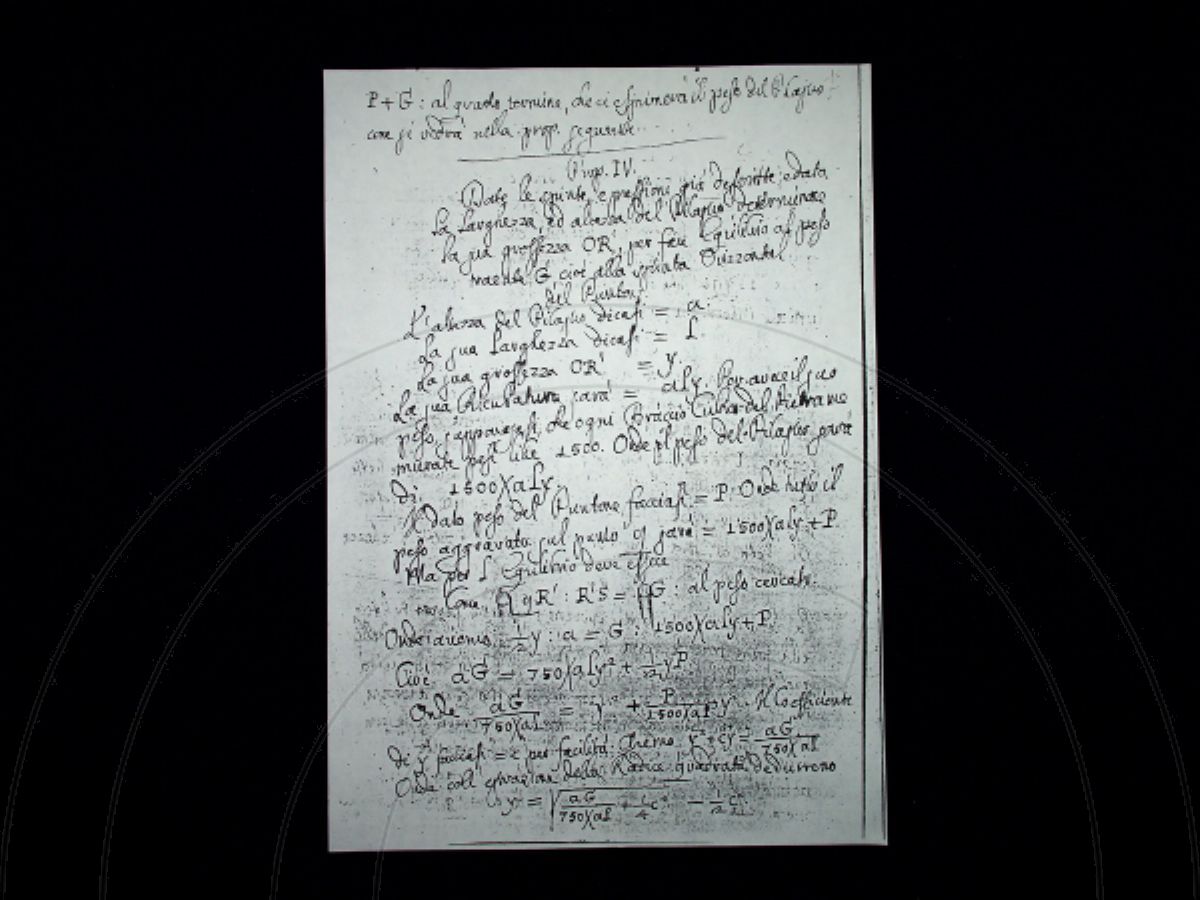 P+G: al quarto termine, che ci esprimerà il peso del Pilastro
come si vedrà nella prop. seguente.
Prop. IV.
Date le spinte, e pressioni già descritte, e data
la Larghezza, ed altezza del Pilastro determinare
la sua grossezza OR', per fare Equilibrio al peso
G cioè alla spinta Orizzontale
del Puntone
L'altezza del Pilastro dicasi = a
La sua Larghezza dicasi = L.
La sua grossezza OR' = y.
La sua sarà = aLy. Per avere il suo
peso, che ogni Braccio Cubo del
murate pesi libre 1500. Onde il peso del Pilastro sarà
di 1500XaLy.
Il dato peso del Puntone facciasi = P. Onde tutto il
peso aggravato sul punto q sarà = 1500XaLy + P
Ma per l'Equilibrio deve essere
Come qR' : R'S = G : al peso cercato.
Onde avremo 1/2 y : a = G : 1500XaLy + P
Cioè aG = 750XaLy² + 1/2 yP.
Onde aG/750XaL = y² + P/1500XaL y. Il Coefficiente
di y facciasi = c per facilità. Avremo y² + cy = aG/750XaL
Onde coll' estrazione della Radice quadrata dedurremo
y = √ aG/750XaL + 1/4 c² − 1/2 c